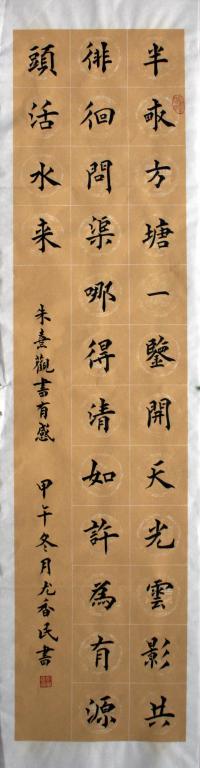 半畝方塘一鑒開天光雲影共
徘徊問渠哪得清如許為有源
頭活水来
朱熹觀書有感 甲午冬月尤香民書